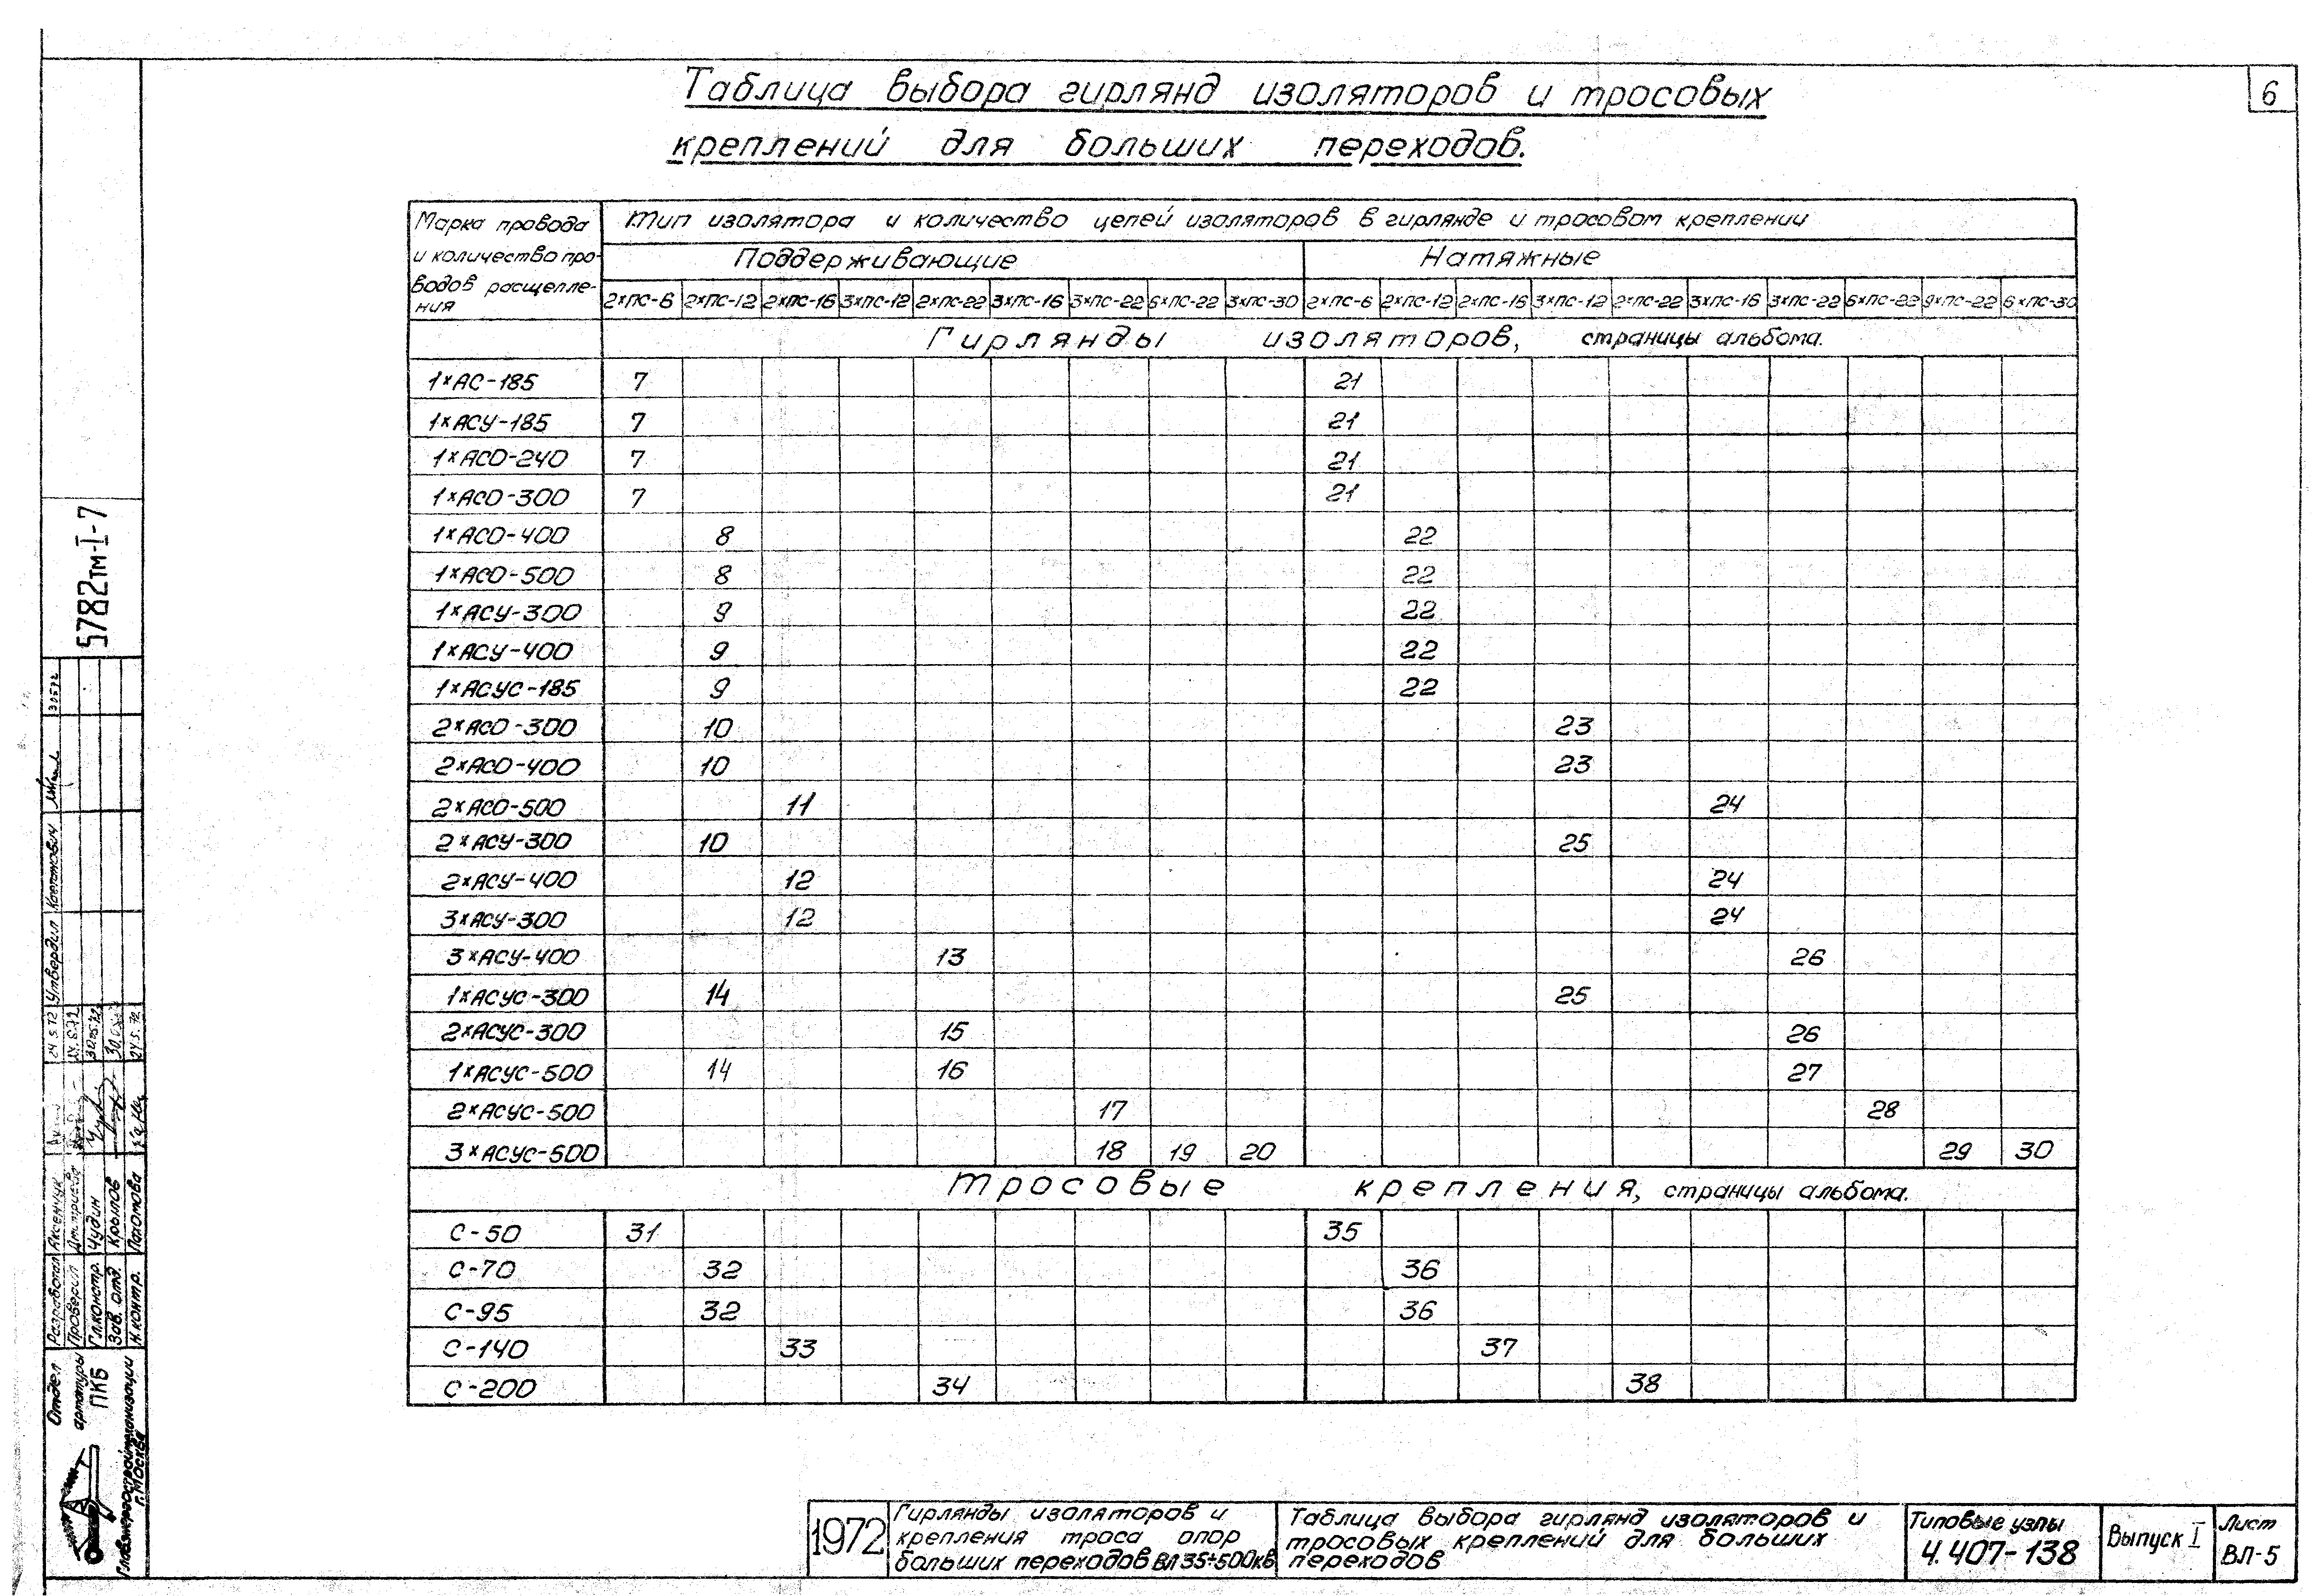 6
Таблица выбора гирлянд изоляторов и тросовых
креплений для больших переходов.
Марка провода
и количество про-
водов расщепле-
ния
Тип изолятора и количество цепей изоляторов в гирлянде и тросовом креплении
Поддерживающие Натяжные
2×ПС-6 2×ПС-12 2×ПС-16 3×ПС-12 2×ПС-22 3×ПС-16 3×ПС-22 6×ПС-22 3×ПС-30 2×ПС-6 2×ПС-12 2×ПС-16 3×ПС-12 2×ПС-22 3×ПС-16 3×ПС-22 6×ПС-22 9×ПС-22 6×ПС-30
Гирлянды изоляторов, страницы альбома.
1×АС-185 7 21
1×АСУ-185 7 21
1×АСО-240 7 21
1×АСО-300 7 21
1×АСО-400 8 22
1×АСО-500 8 22
1×АСУ-300 9 22
1×АСУ-400 9 22
1×АСУС-185 9 22
2×АСО-300 10 23
2×АСО-400 10 23
2×АСО-500 11 24
2×АСУ-300 10 25
2×АСУ-400 12 24
3×АСУ-300 12 24
3×АСУ-400 13 26
1×АСУС-300 14 25
2×АСУС-300 15 26
1×АСУС-500 14 16 27
2×АСУС-500 17 28
3×АСУС-500 18 19 20 29 30
Тросовые крепления, страницы альбома.
С-50 31 35
С-70 32 36
С-95 32 36
С-140 33 37
С-200 34 38
5782тм-I-7
Утвердил
Разработал Аксенчук 24.5.72
Проверил Дмитриева
Гл.констр. Чудин
Зав. отд. Крылов
Н.контр. Лаптова 24.5.72
Отдел
арматуры
ПКБ
Главэнергостроймеханизации
г. Москва
1972
Гирлянды изоляторов и
крепления троса опор
больших переходов ВЛ 35÷500кв
Таблица выбора гирлянд изоляторов и
тросовых креплений для больших
переходов
Типовые узлы
4.407-138
Выпуск I
Лист
ВЛ-5